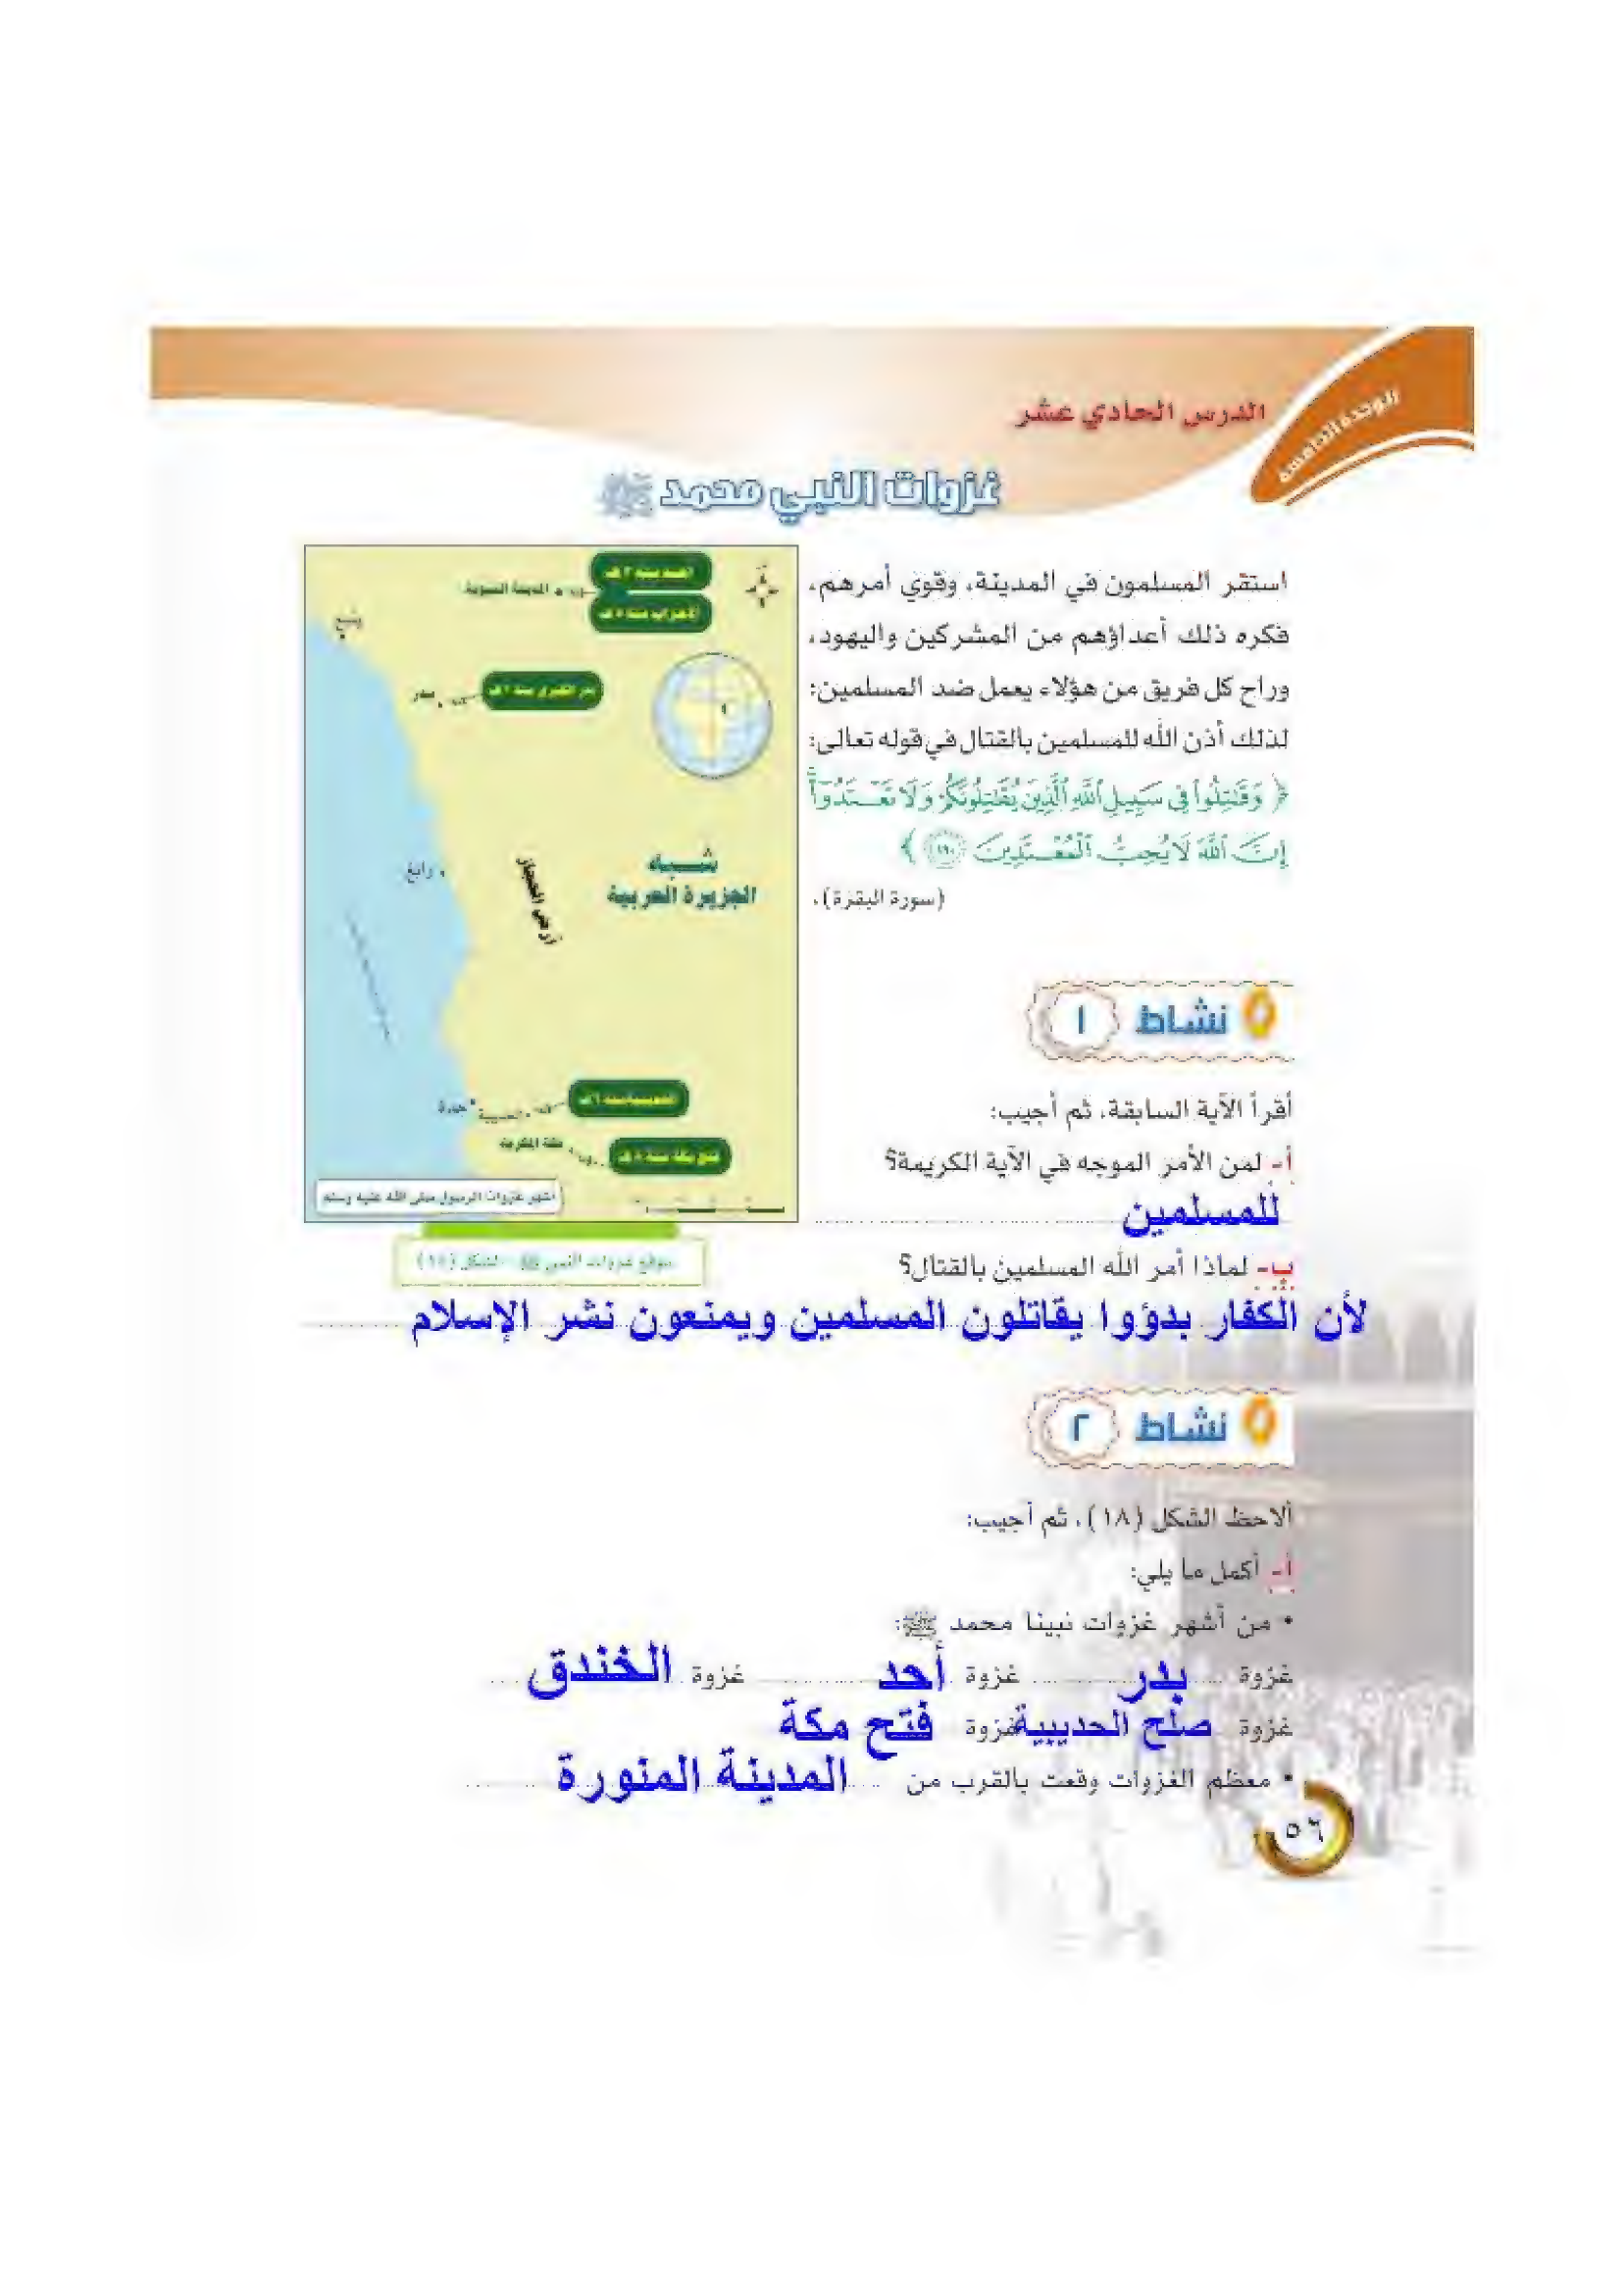 الوحدة الخامسة
الدرس الحادي عشر
غزوات النبي محمد ﷺ
استقر المسلمون في المدينة، وقوي أمرهم،
فكره ذلك أعداؤهم من المشركين واليهود،
وراح كل فريق من هؤلاء يعمل ضد المسلمين؛
لذلك أذن الله للمسلمين بالقتال في قوله تعالى:
﴿ وَقَٰتِلُوا۟ فِى سَبِيلِ ٱللَّهِ ٱلَّذِينَ يُقَٰتِلُونَكُمْ وَلَا تَعْتَدُوٓا۟
إِنَّ ٱللَّهَ لَا يُحِبُّ ٱلْمُعْتَدِينَ ١٩٠ ﴾
(سورة البقرة).
أحد سنة ٣ هـ
المدينة النبوية
الأحزاب سنة ٥ هـ
ينبع
بدر الكبرى سنة ٢ هـ
بدر
رابغ
أرض الحجاز
شبه
الجزيرة العربية
الحديبية
جدة
مكة المكرمة
فتح مكة سنة ٨ هـ
أشهر غزوات الرسول صلى الله عليه وسلم
موقع غزوات النبي ﷺ - الشكل (١٨)
نشاط ١
أقرأ الآية السابقة، ثم أجيب:
أ- لمن الأمر الموجه في الآية الكريمة؟
للمسلمين
ب- لماذا أمر الله المسلمين بالقتال؟
لأن الكفار بدؤوا يقاتلون المسلمين ويمنعون نشر الإسلام
نشاط ٢
ألاحظ الشكل (١٨)، ثم أجيب:
أ- أكمل ما يلي:
• من أشهر غزوات نبينا محمد ﷺ:
غزوة بدر غزوة أحد غزوة الخندق
غزوة صلح الحديبية غزوة فتح مكة
• معظم الغزوات وقعت بالقرب من المدينة المنورة
٥٦